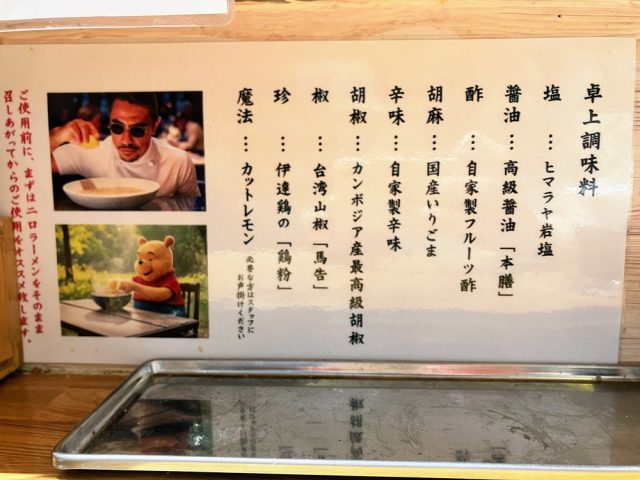 卓上調味料
塩 … ヒマラヤ岩塩
醤油 … 高級醤油「本膳」
酢 … 自家製フルーツ酢
胡麻 … 国産いりごま
辛味 … 自家製辛味
胡椒 … カンボジア産最高級胡椒
椒 … 台湾山椒「馬告」
珍 … 伊達鶏の「鶏粉」
魔法 … カットレモン
必要な方はスタッフに
お声掛けください
ご使用前に、まずは一口ラーメンをそのまま
召しあがってからのご使用をオススメ致します。